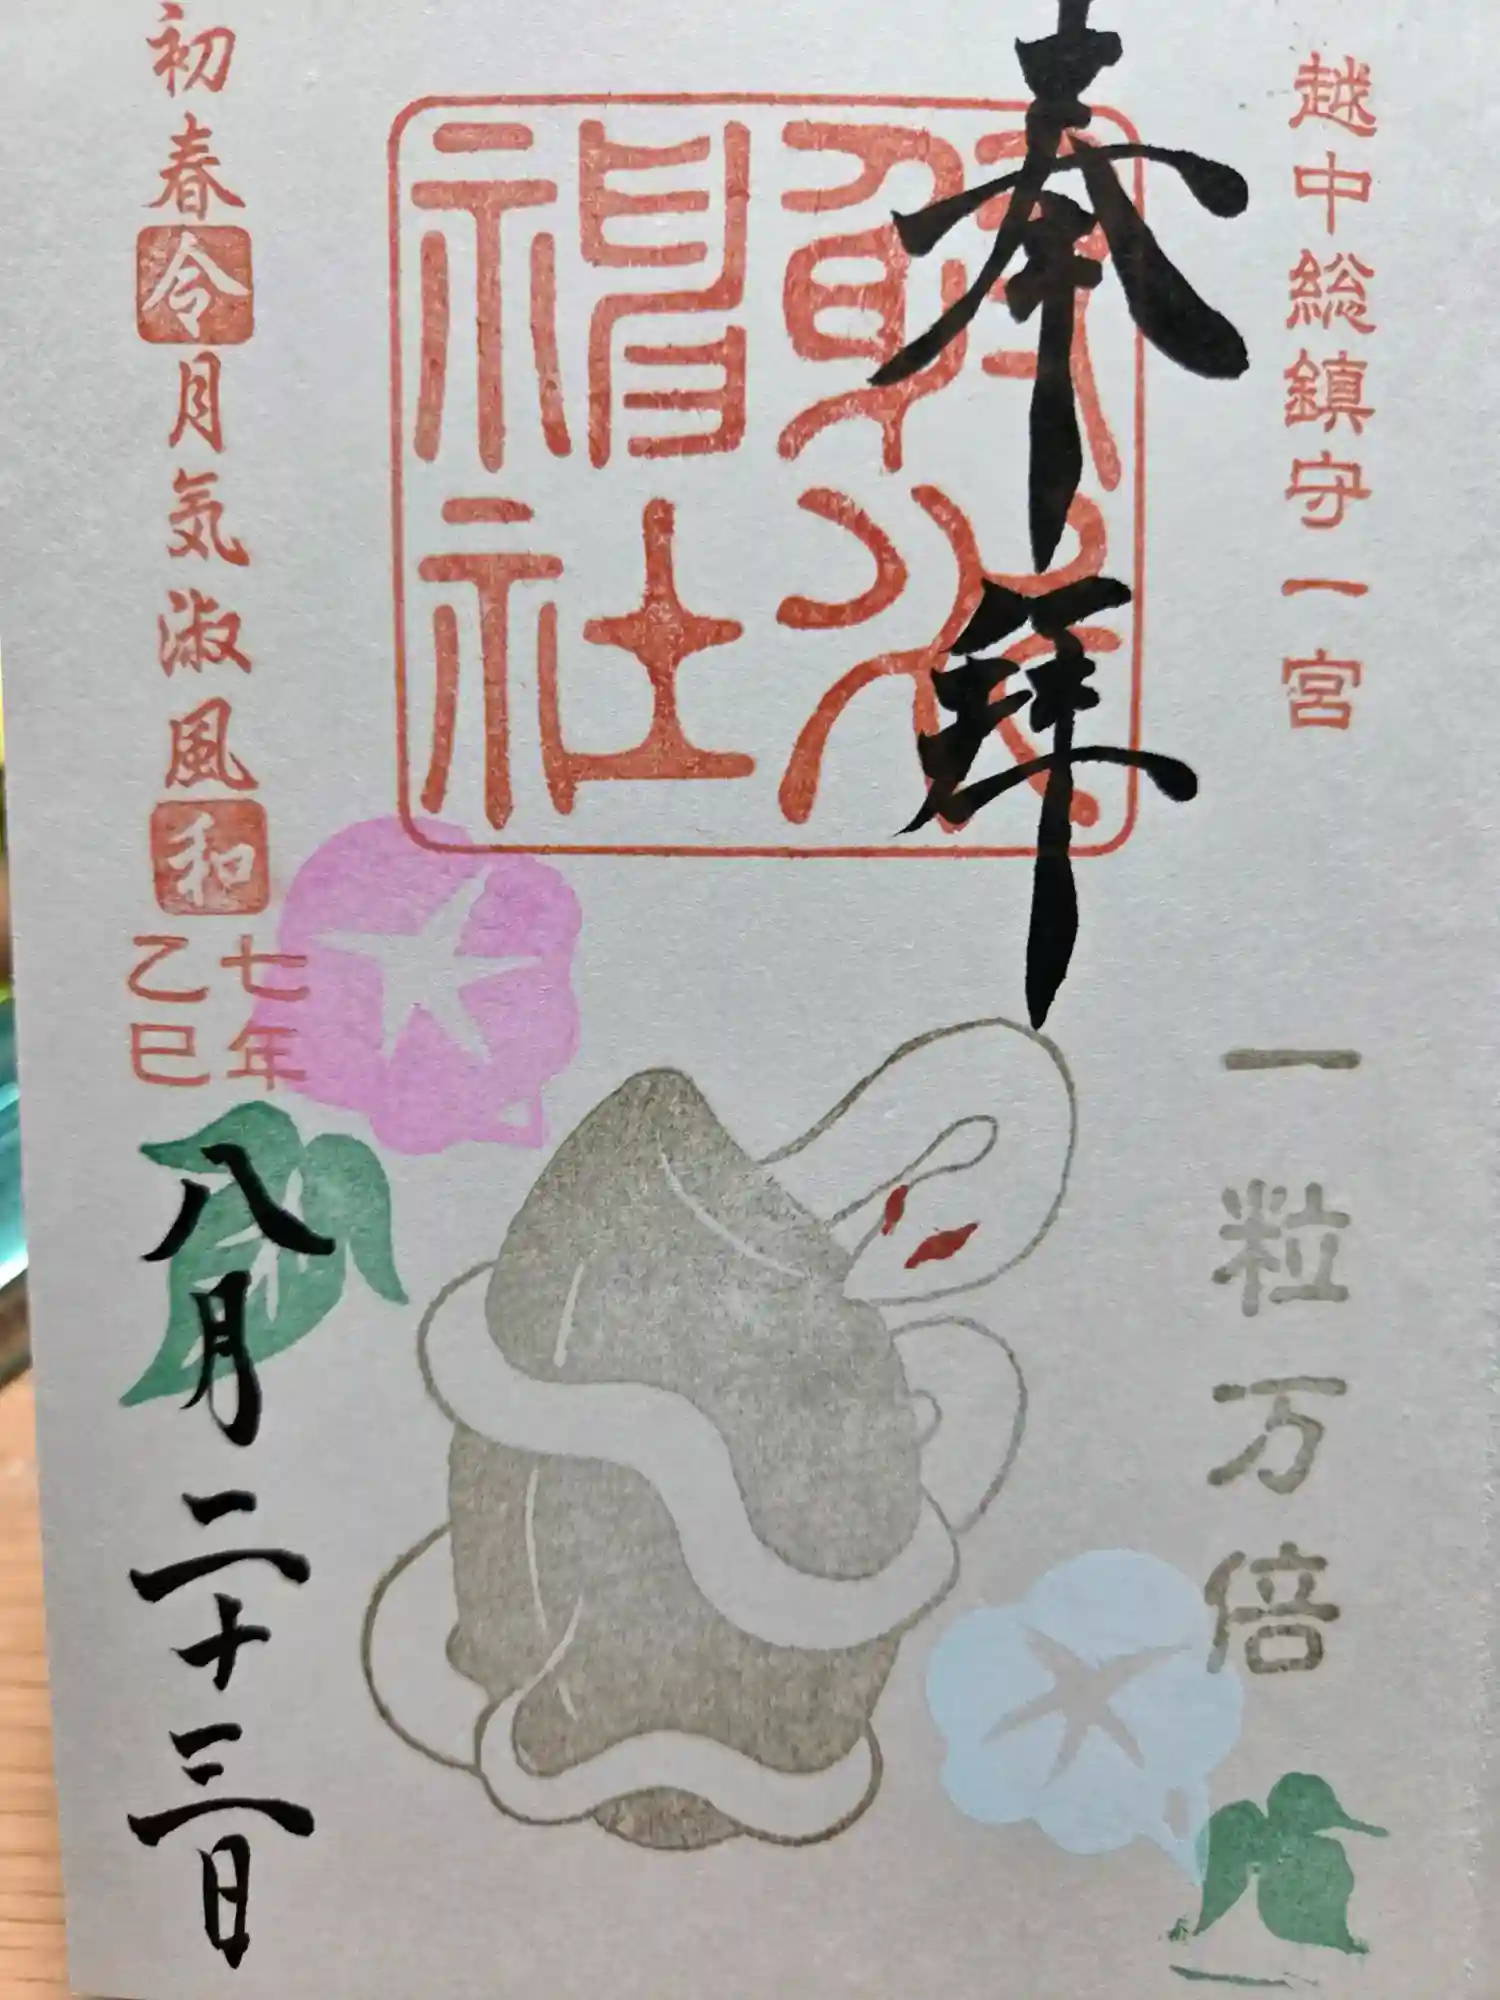 越中総鎮守一宮
奉拝
射水神社
一粒万倍
初春令月気淑風和
七年
乙巳
八月二十三日